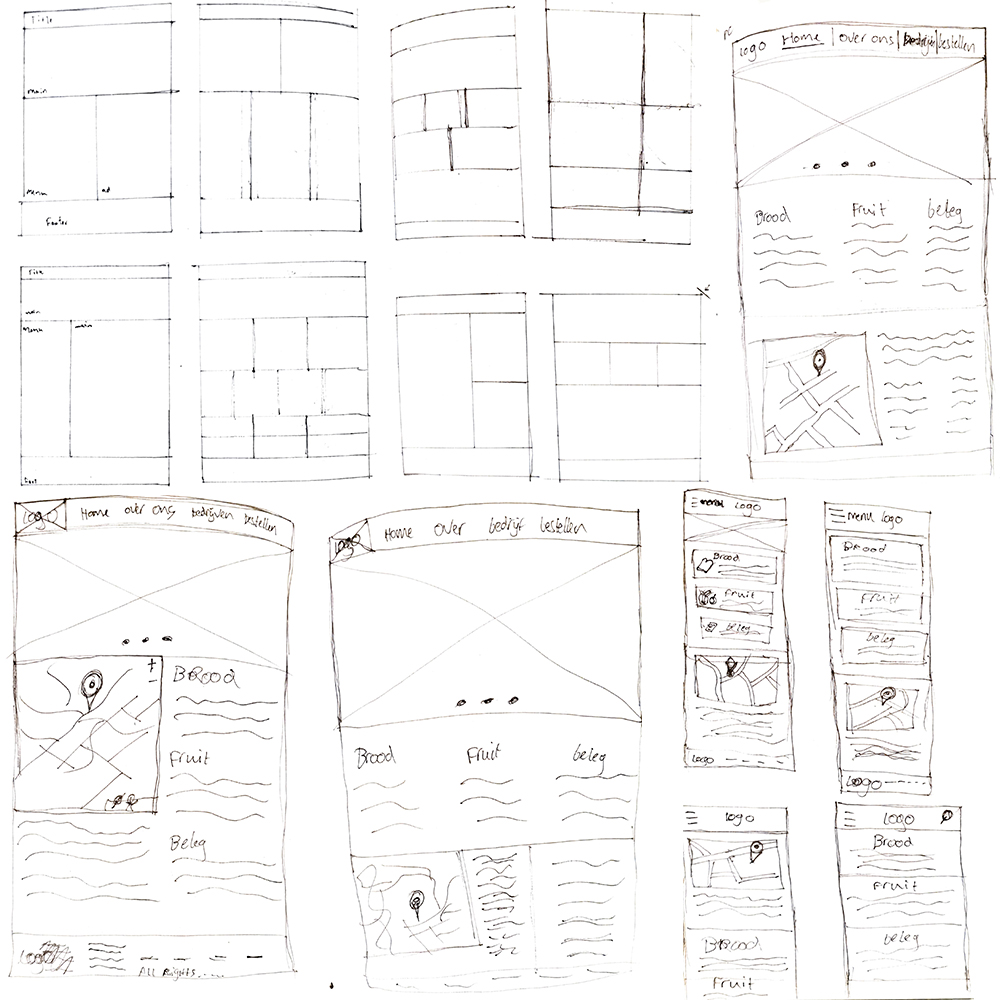 Title
Main
Menu
ad
Footer
main
Menu
main
Foot
pc
Logo Home | over ons | bedrijf | bestellen
Brood Fruit beleg
Logo Home over ons bedrijven bestellen
BROOd
Fruit
Beleg
Logo
ALL Rights.....
Logo Home over bedrijf bestellen
Brood Fruit beleg
menu Logo
Brood
Fruit
beleg
Logo
menu Logo
Brood
Fruit
beleg
Logo
Logo
Brood
Fruit
Logo
Brood
Fruit
beleg